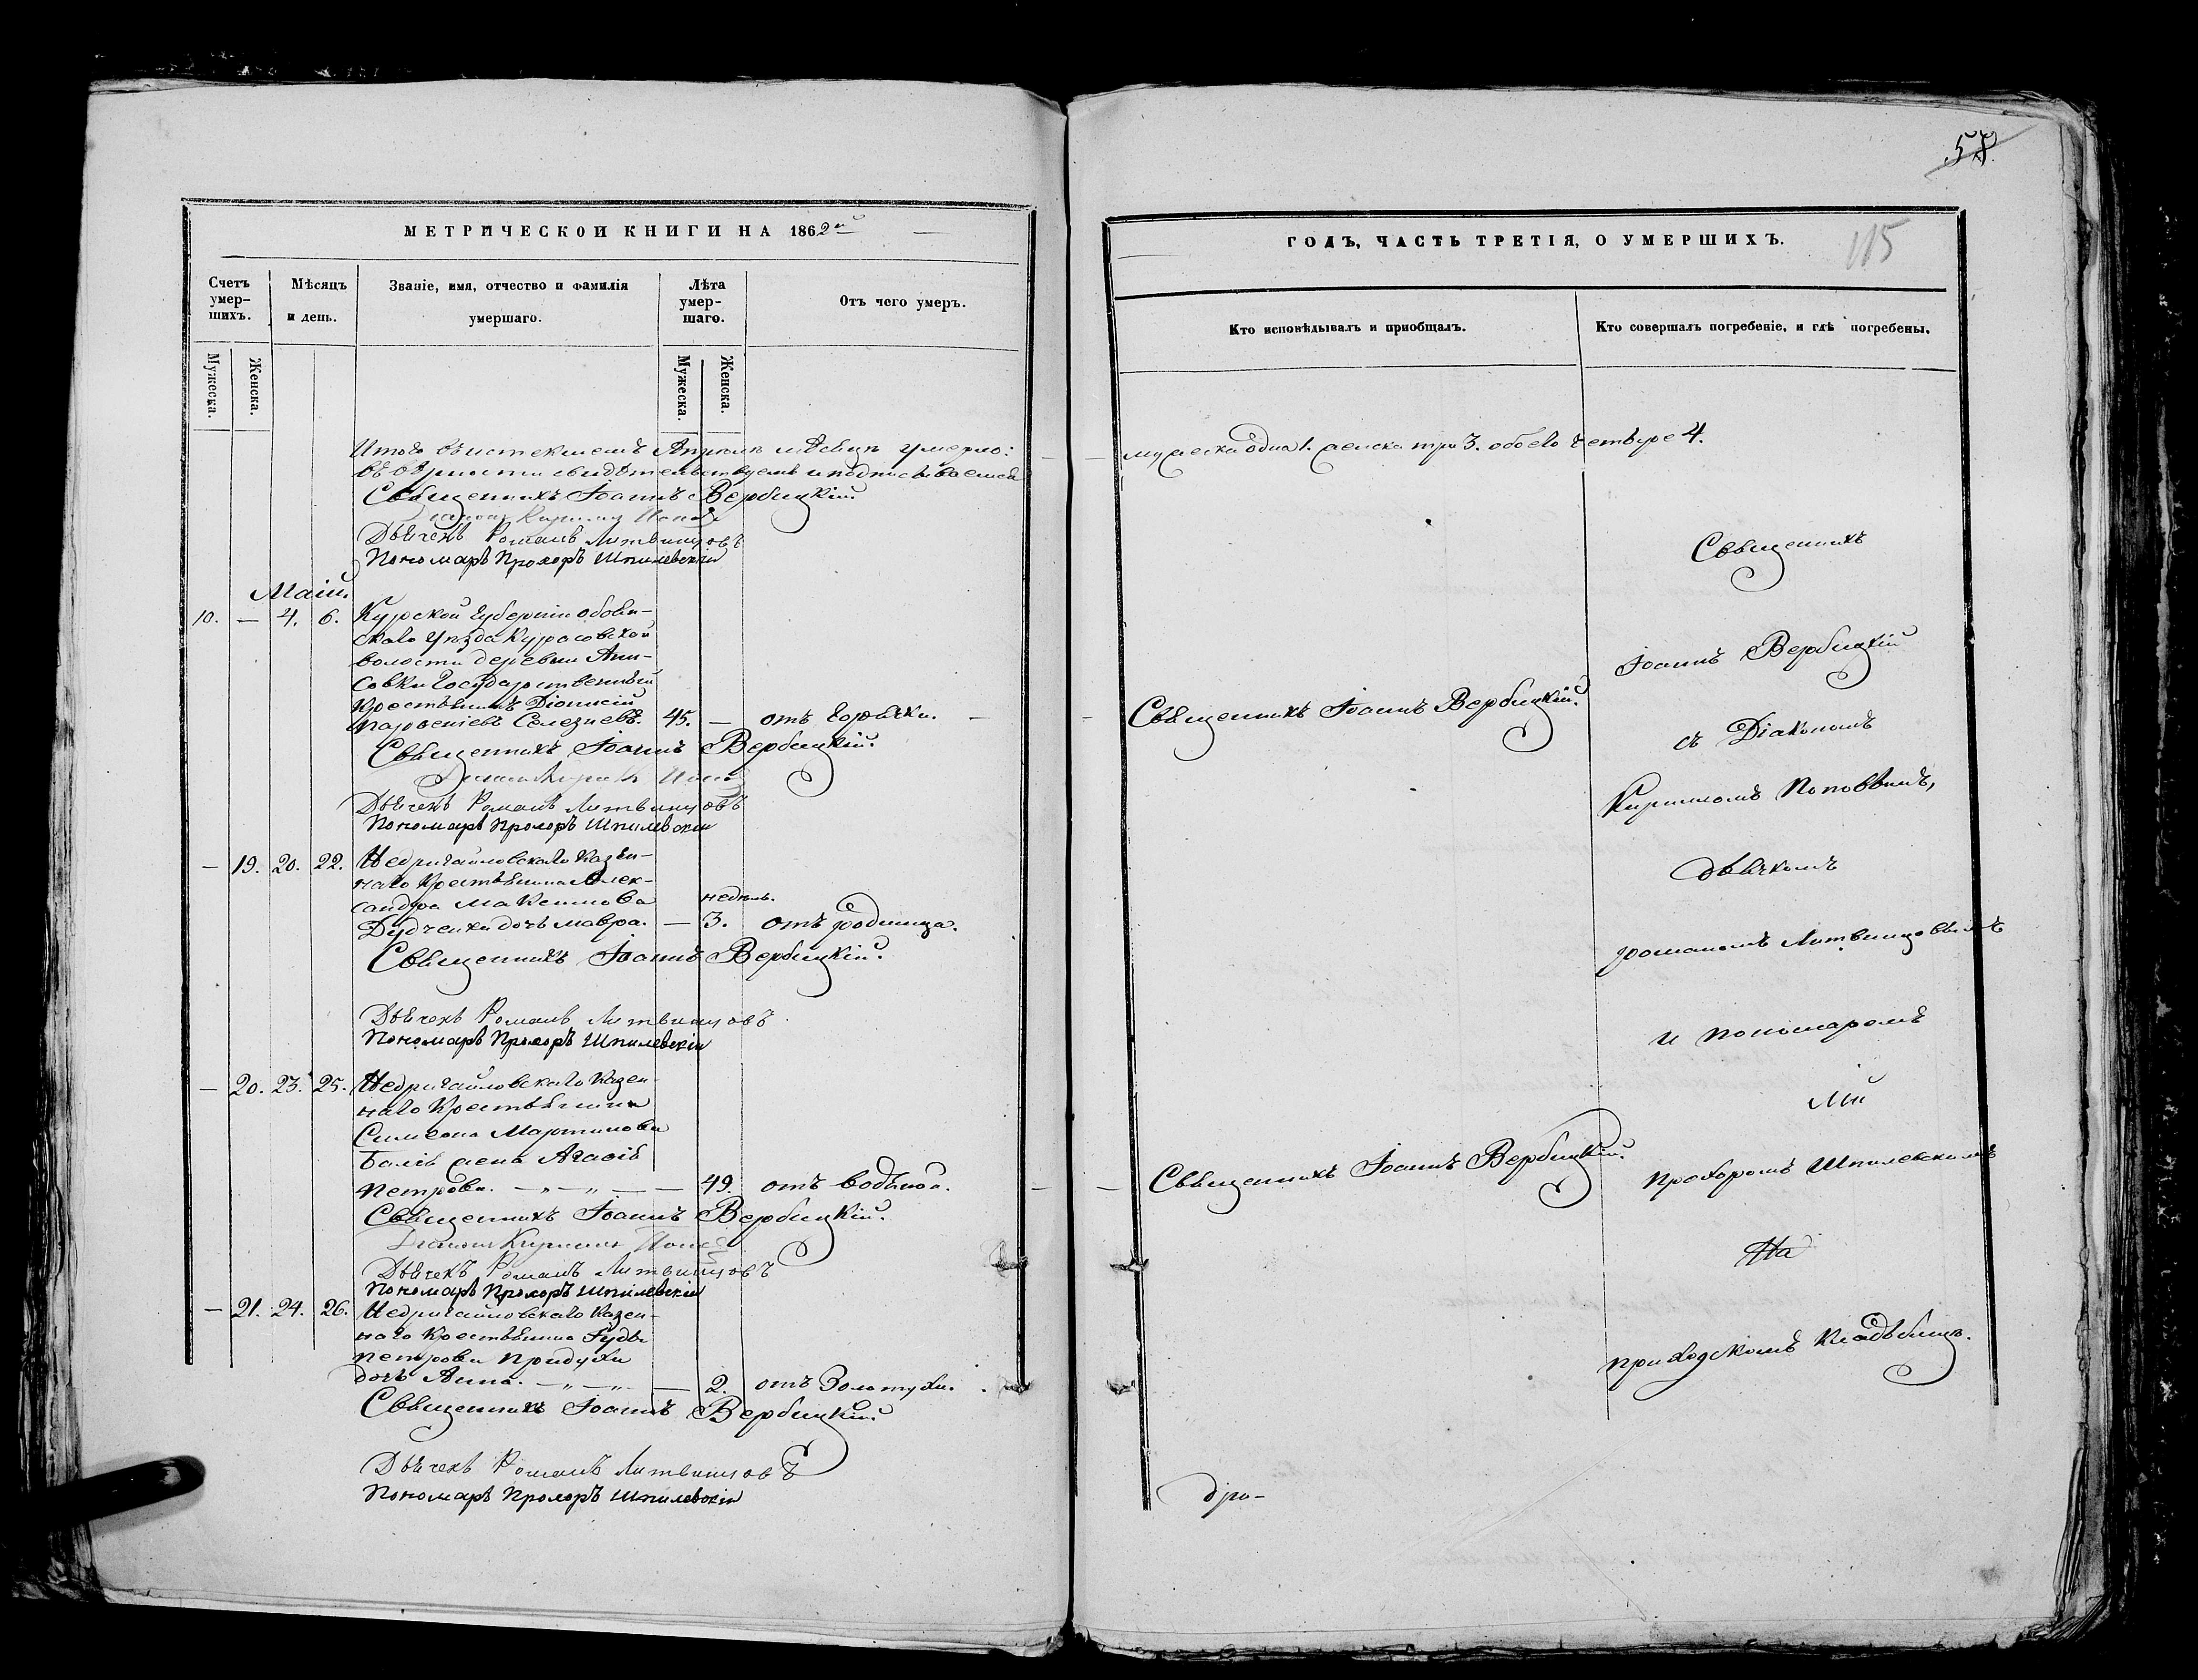 МЕТРИЧЕСКОЙ КНИГИ НА 1862й
Счетъ умер-шихъ.
Мѣсяцъ и день.
Званіе, имя, отчество и фамилія умершаго.
Лѣта умер-шаго.
Отъ чего умеръ.
Мужеска. Женска. Мужеска. Женска.
Итого въ истекшемъ Апрѣлѣ мѣсяцѣ умерло:
въ вѣрности свидѣтельствуемъ и подписываемся
Священникъ Іоаннъ Вербицкій.
Дьячекъ Романъ Литвинцовъ
Пономарь Прохоръ Шпилевскій
Маій.
10. — 4. 6. Курской Губерніи Обоян-
скаго Уѣзда Курасовской
волости деревни
Государственный
Крестьянинъ Діонисій
Парѳеніевъ Селезневъ. 45. — отъ Горячки. —
Священникъ Іоаннъ Вербицкій.
Дьячекъ Романъ Литвинцовъ
Пономарь Прохоръ Шпилевскій
— 19. 20. 22. Недригайловскаго Казен-
наго Крестьянина Алек-
сандра Максимова недѣль.
Дудченки дочь Мавра. — 3. отъ родимца.
Священникъ Іоаннъ Вербицкій.
Дьячекъ Романъ Литвинцовъ
Пономарь Прохоръ Шпилевскій
— 20. 23. 25. Недригайловскаго Казен-
наго Крестьянина
Симеона Мартинова
жена Агафія
Петрова. — 49. отъ водяной.
Священникъ Іоаннъ Вербицкій.
Діаконъ Кириллъ Поповъ
Дьячекъ Романъ Литвинцовъ
Пономарь Прохоръ Шпилевскій
— 21. 24. 26. Недригайловскаго Казен-
наго Крестьянина
Петрова
дочь Анна. — 2. отъ Золотухи.
Священникъ Іоаннъ Вербицкій.
Дьячекъ Романъ Литвинцовъ
Пономарь Прохоръ Шпилевскій
58.
ГОДЪ, ЧАСТЬ ТРЕТІЯ, О УМЕРШИХЪ.
115
Кто исповѣдывалъ и приобщалъ.
Кто совершалъ погребеніе, и гдѣ погребены.
мужеска одна 1. женска три 3. обоего четыре 4.
Священникъ
Іоаннъ Вербицкій
Священникъ Іоаннъ Вербицкій.
съ Діакономъ
Кирилломъ Поповымъ,
дьячкомъ
Романомъ Литвинцовымъ
и пономаремъ
Священникъ Іоаннъ Вербицкій.
Прохоромъ Шпилевскимъ
На
приходскомъ Кладбищѣ.